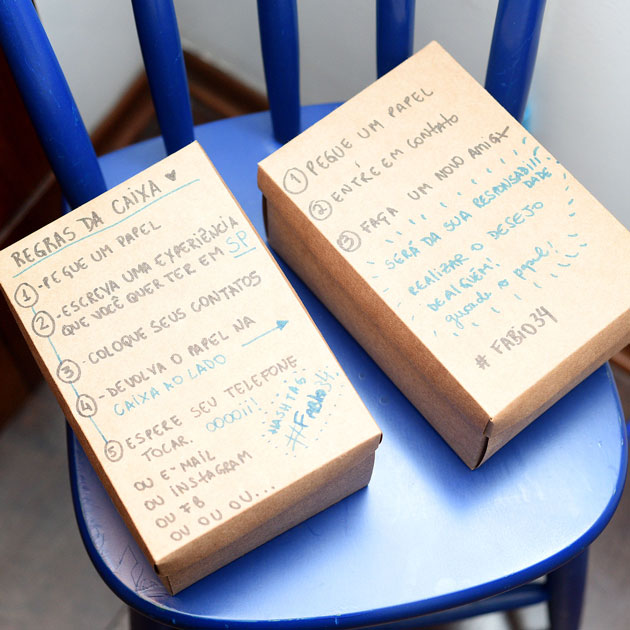 REGRAS DA CAIXA ♥
1 - PEGUE UM PAPEL
2 - ESCREVA UMA EXPERIÊNCIA
QUE VOCÊ QUER TER EM SP
3 - COLOQUE SEUS CONTATOS
4 - DEVOLVA O PAPEL NA →
CAIXA AO LADO
5 ESPERE SEU TELEFONE
TOCAR. OOOOIII!
OU E-MAIL
OU INSTAGRAM
OU FB
OU OU OU...
HASHTAG
#FABIO34
1 PEGUE UM PAPEL
2 ENTRE EM CONTATO
3 FAÇA UM NOVO AMIGX
SERÁ DA SUA RESPONSABILI
DADE
REALIZAR O DESEJO
DE ALGUÉM!
guarde o papel!
#FABIO34